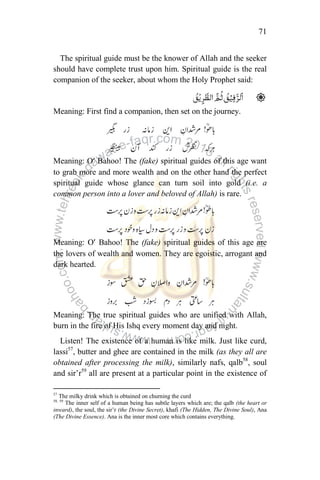 71
The spiritual guide must be the knower of Allah and the seeker
should have complete trust upon him. Spiritual guide is the real
companion of the seeker, about whom the Holy Prophet said:
اَلرَّفِیْقُ ثُمَّ الطَّرِیْقُ
Meaning: First find a companion, then set on the journey.
باھوؒ! مرشدانِ این زمانہ زر بگیر
Meaning: O' Bahoo! The (fake) spiritual guides of this age want
to grab more and more wealth and on the other hand the perfect
spiritual guide whose glance can turn soil into gold (i.e. a
common person into a lover and beloved of Allah) is rare.
باھوؒ! مرشدانِ این زمانہ زر پرست و زن پرست
زن پرست و زر پرست و دل سیاہ و خود پرست
Meaning: O' Bahoo! The (fake) spiritual guides of this age are
the lovers of wealth and women. They are egoistic, arrogant and
dark hearted.
باھوؒ! مرشدان واصلان حق عشق سوز
ہر ساعتی ہر دم بسوزد شب بروز
Meaning: The true spiritual guides who are unified with Allah,
burn in the fire of His Ishq every moment day and night.
Listen! The existence of a human is like milk. Just like curd,
lassi57, butter and ghee are contained in the milk (as they all are
obtained after processing the milk), similarly nafs, qalb58, soul
and sir'r59 all are present at a particular point in the existence of
57 The milky drink which is obtained on churning the curd
58, 59 The inner self of a human being has subtle layers which are; the qalb (the heart or
inward), the soul, the sir'r (the Divine Secret), khafi (The Hidden, The Divine Soul), Ana
(The Divine Essence). Ana is the inner most core which contains everything.